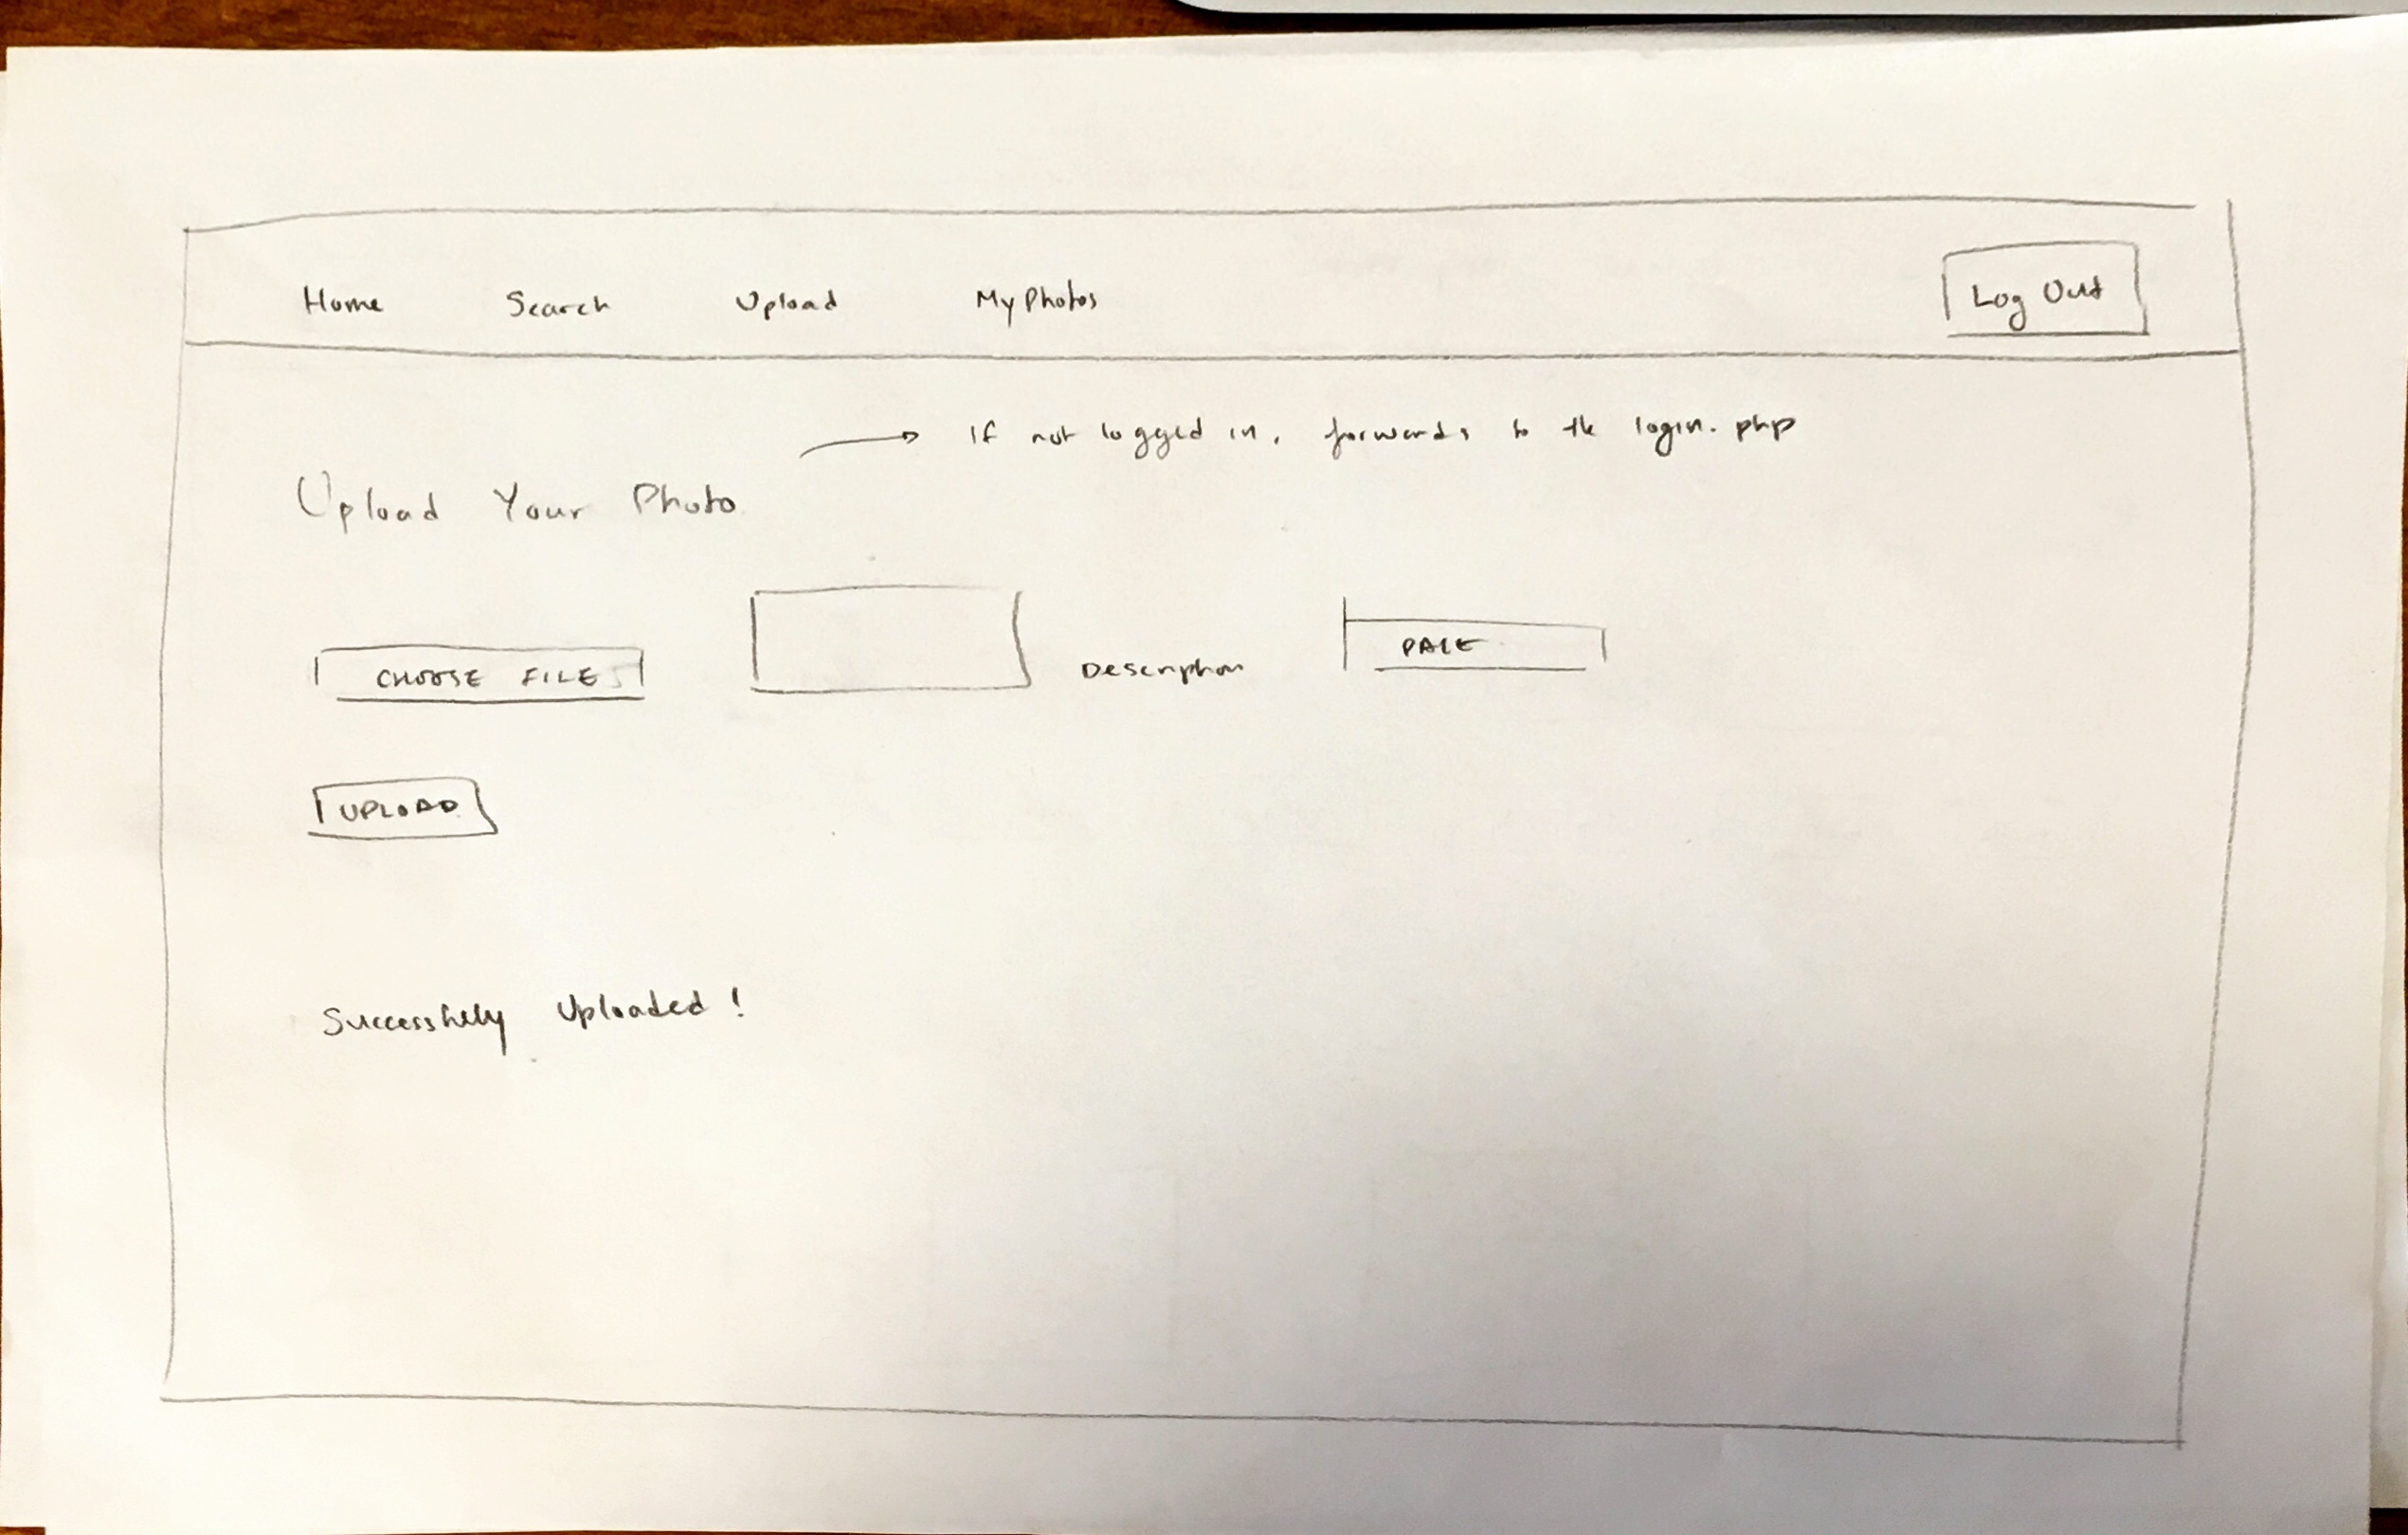 Home Search Upload MyPhotos Log Out
If not logged in, forwards to the login.php
Upload Your Photo
CHOOSE FILE Description
UPLOAD
Successfully Uploaded!